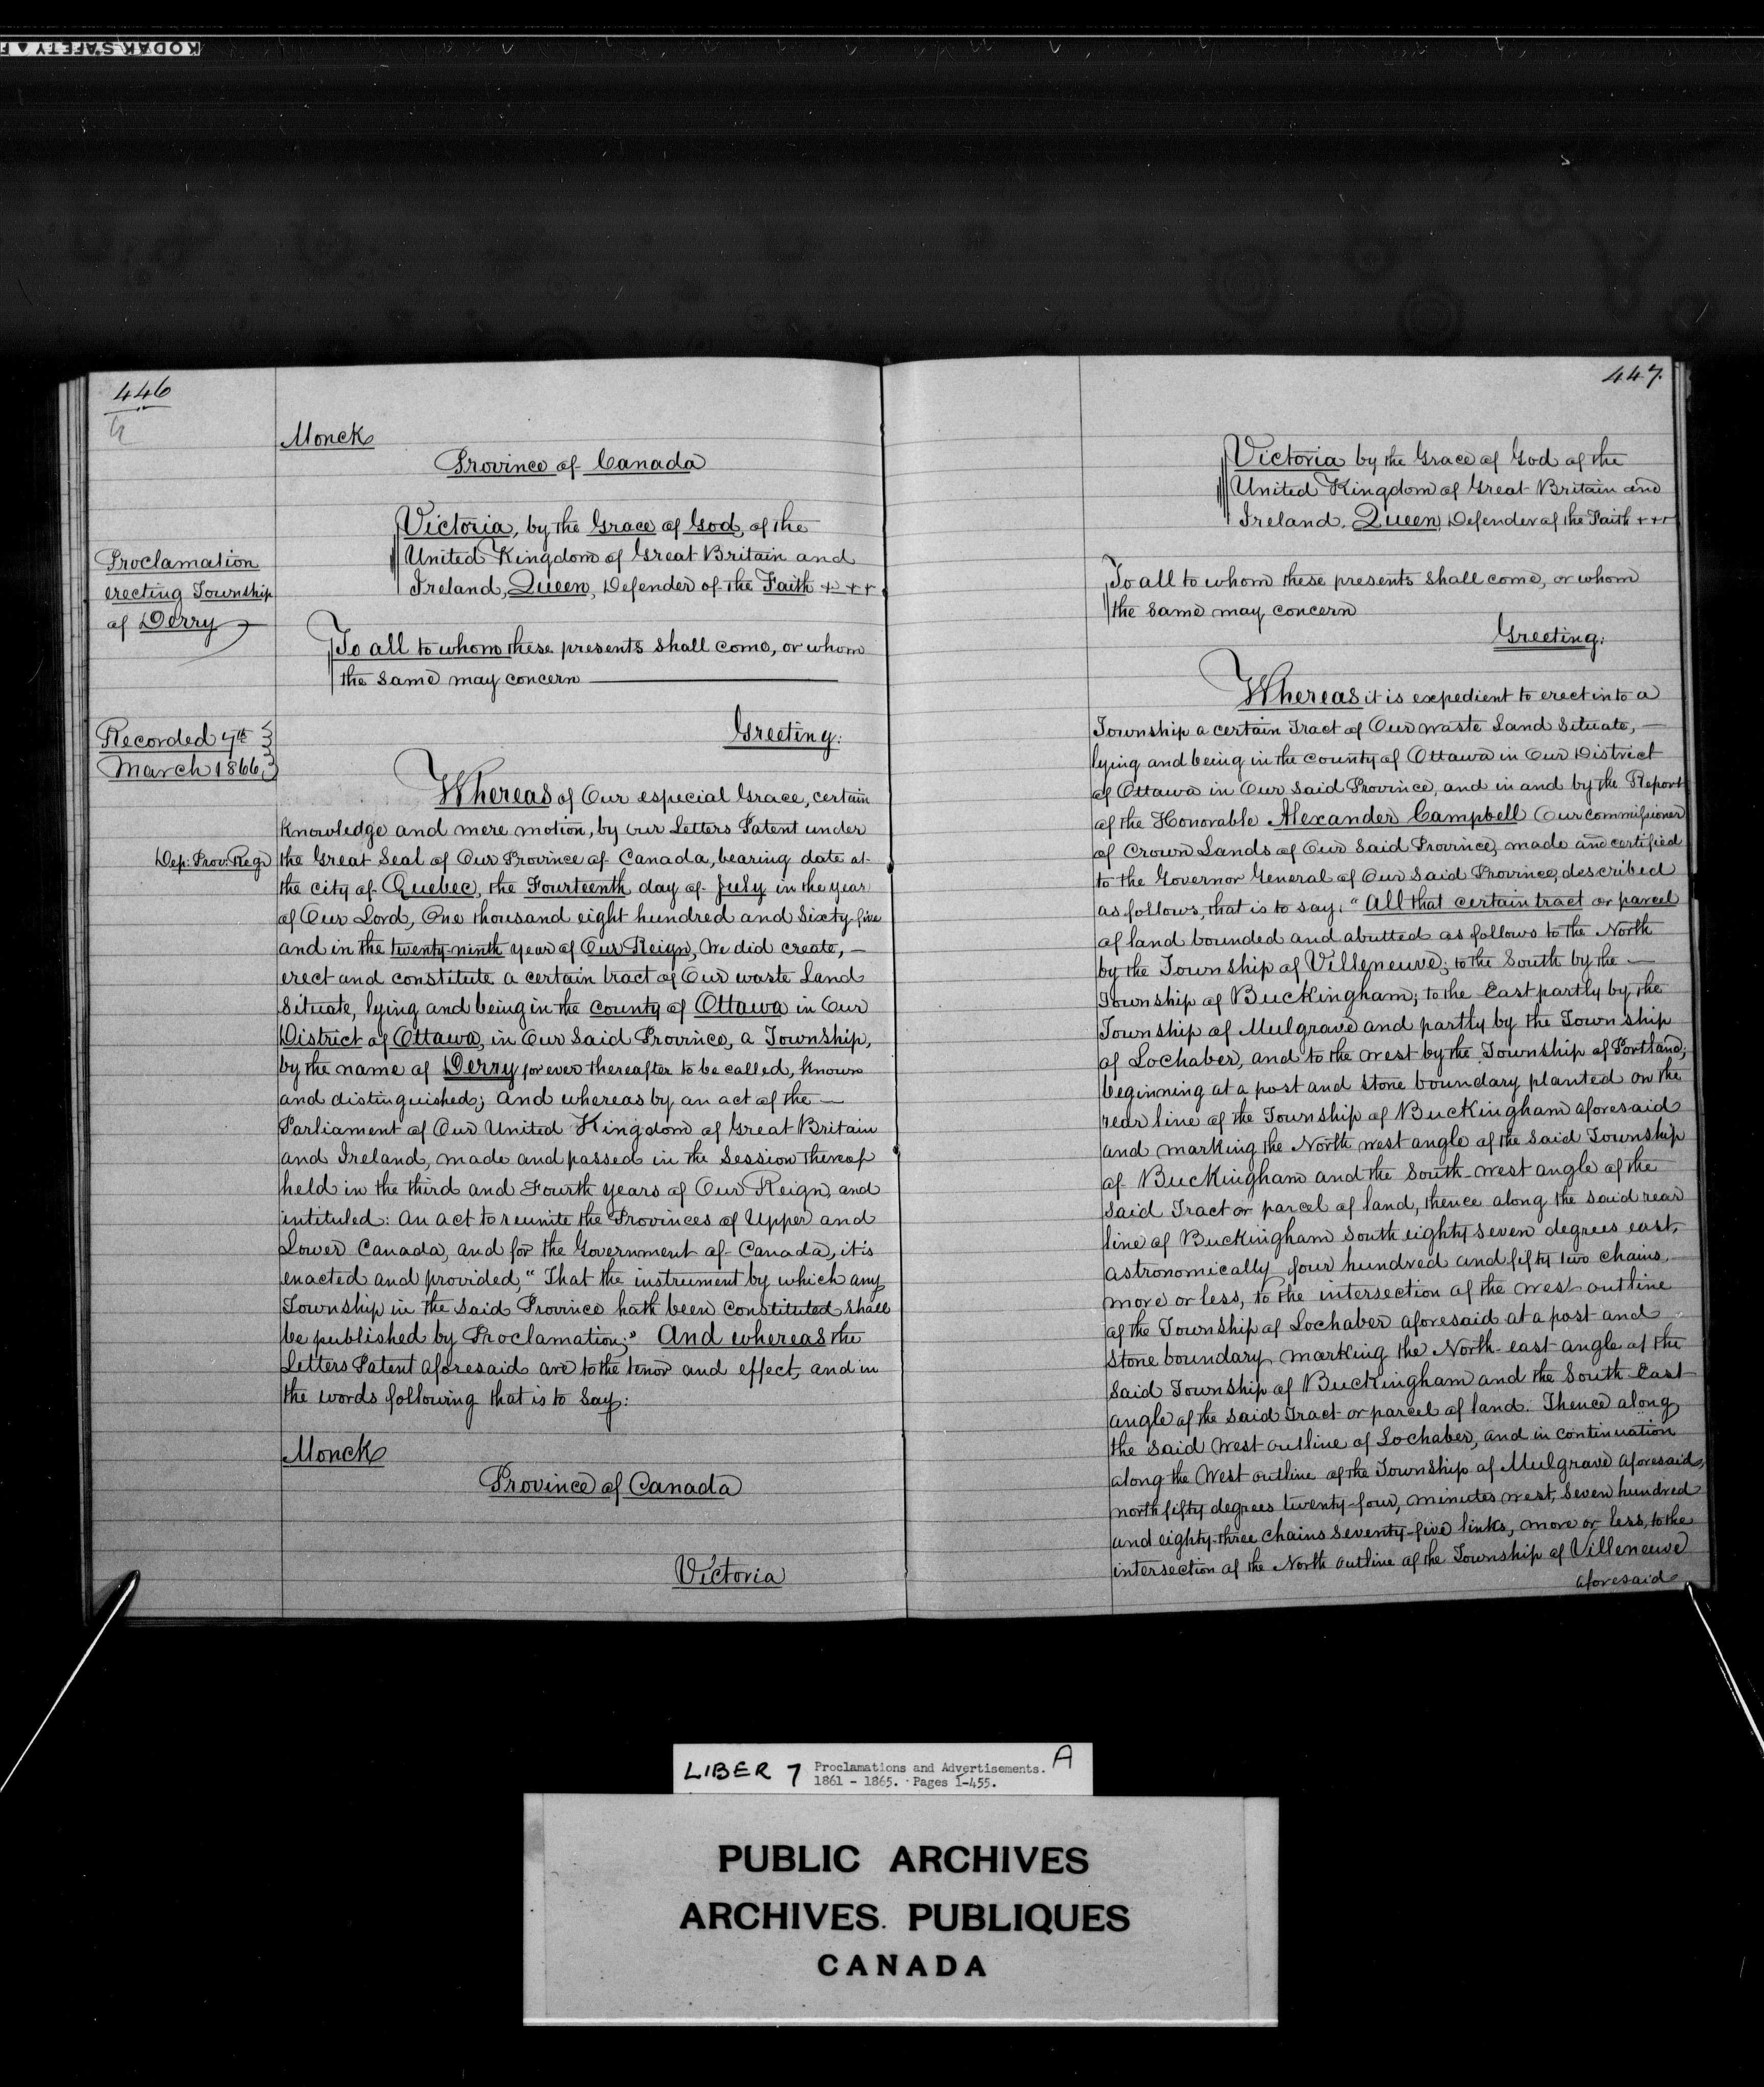 KODAK SAFETY F
446
Monck
Province of Canada
Victoria, by the Grace of God, of the
United Kingdom of Great Britain and
Ireland, Queen, Defender of the Faith + + +
Proclamation
erecting Township
of Derry
To all to whom these presents shall come, or whom
the same may concern
Recorded 7th
March 1866
Greeting:
Dep: Prov: Regr
Whereas of Our especial Grace, certain
knowledge and mere motion, by our Letters Patent under
the Great Seal of Our Province of Canada, bearing date at
the city of Quebec, the Fourteenth day of July in the year
of Our Lord, One thousand eight hundred and Sixty-five
and in the twenty-ninth year of Our Reign, We did create, —
erect and constitute a certain tract of Our waste Land
Situate, lying and being in the county of Ottawa in Our
District of Ottawa, in Our Said Province, a Township,
by the name of Derry for ever thereafter to be called, known
and distinguished; and whereas by an act of the —
Parliament of Our United Kingdom of Great Britain
and Ireland, made and passed in the Session thereof
held in the third and Fourth years of Our Reign, and
intituled: An act to reunite the Provinces of Upper and
Lower Canada, and for the Government of Canada, it is
enacted and provided, "That the instrument by which any
Township in the said Province hath been constituted shall
be published by Proclamation;" And whereas the
Letters Patent aforesaid are to the tenor and effect, and in
the words following that is to say:
Monck
Province of Canada
Victoria
447.
Victoria by the Grace of God of the
United Kingdom of Great Britain and
Ireland, Queen, Defender of the Faith + + +
To all to whom these presents shall come, or whom
the same may concern
Greeting:
Whereas it is expedient to erect into a
Township a certain Tract of Our waste Land Situate, —
lying and being in the county of Ottawa in Our District
of Ottawa in Our said Province, and in and by the Report
of the Honorable Alexander Campbell Our commissioner
of Crown Lands of Our Said Province, made and certified
to the Governor General of Our said Province, described
as follows, that is to say: "All that certain tract or parcel
of land bounded and abutted as follows to the North
by the Township of Villeneuve; to the South by the —
Township of Buckingham; to the East partly by the
Township of Mulgrave and partly by the Township
of Lochaber, and to the west by the Township of Portland;
beginning at a post and stone boundary planted on the
rear line of the Township of Buckingham aforesaid
and marking the North west angle of the said Township
of Buckingham and the South-west angle of the
said Tract or parcel of land, thence along the said rear
line of Buckingham South eighty seven degrees east,
astronomically four hundred and fifty two chains,
more or less, to the intersection of the west outline
of the Township of Lochaber aforesaid at a post and
stone boundary marking the North-east angle of the
Said Township of Buckingham and the South-East
angle of the said Tract or parcel of land. Thence along
the said West outline of Lochaber, and in continuation
along the West outline of the Township of Mulgrave aforesaid,
north fifty degrees twenty-four, minutes west, Seven hundred
and eighty-three chains seventy-five links, more or less, to the
intersection of the North outline of the Township of Villeneuve
aforesaid
LIBER 7 Proclamations and Advertisements. A
1861 - 1865. Pages 1-455.
PUBLIC ARCHIVES
ARCHIVES PUBLIQUES
CANADA